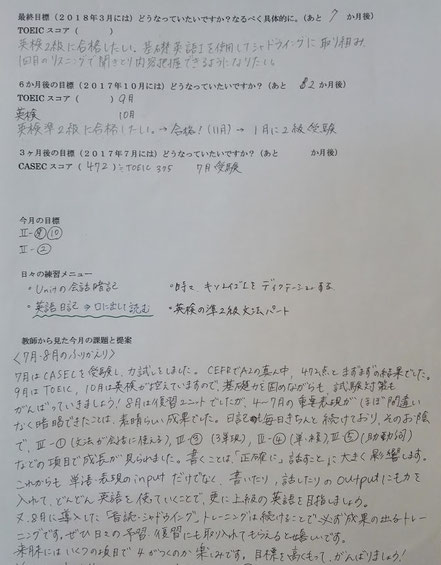 最終目標(2018年3月には)どうなっていたいですか?なるべく具体的に。(あと 7 か月後)
TOEICスコア( )
英検2級に合格したい。基礎英語3を使用してシャドウイングに取り組み
1回目のリスニングで聞きとり内容把握できるようになりたい
6か月後の目標(2017年10月には)どうなっていたいですか?(あと 2 か月後)
TOEICスコア( ) 9月
英検 10月
英検準2級に合格したい。→合格!(11月)→1月に2級受験
3ヶ月後の目標(2017年7月には)どうなっていたいですか?(あと か月後)
CASECスコア(472)≒TOEIC 395 7月受験
今月の目標
Ⅱ-⑨⑩
Ⅱ-②
日々の練習メニュー
・Unitの会話暗記 ・時々 キソトレイズをディクテーションする
・英語日記⇒口に出して読む ・英検の準2級文法パート
教師から見た今月の課題と提案
〈7月・8月のふりかえり〉
7月はCASECを受験し、力試しをしました。CEFRでA2の真ん中、472点とまずまずの結果でした。
9月はTOEIC、10月は英検が控えていますので、基礎力を固めながらも、試験対策も
がんばっていきましょう!8月は復習ユニットでしたが、4~7月の重要表現が(ほぼ間違い
なく暗唱できたことは、素晴らしい成果でした。日記も毎日きちんと続けており、そのお陰
で、Ⅱ-①(文法が会話に使える)、Ⅱ-③(3単現)、Ⅱ-④(単・複)Ⅱ-⑤(助動詞)
などの項目で成長が見られました。書くことは「正確に」話すことに大きく影響します。
これからも 単語・表現のinputだけでなく、書いたり、話したりのoutputにも力を
入れて、どんどん英語を使っていくことで、更に上級の英語を目指しましょう。
又、8月に導入した「音読・シャドウイング」トレーニングは続けることで必ず成果の出るトレー
ニングです。ぜひ日々の学習・復習にも取り入れてもらえると嬉しいです。
来月にはいくつの項目で4がつくのか楽しみです。目標を高くもって、がんばりましょう!